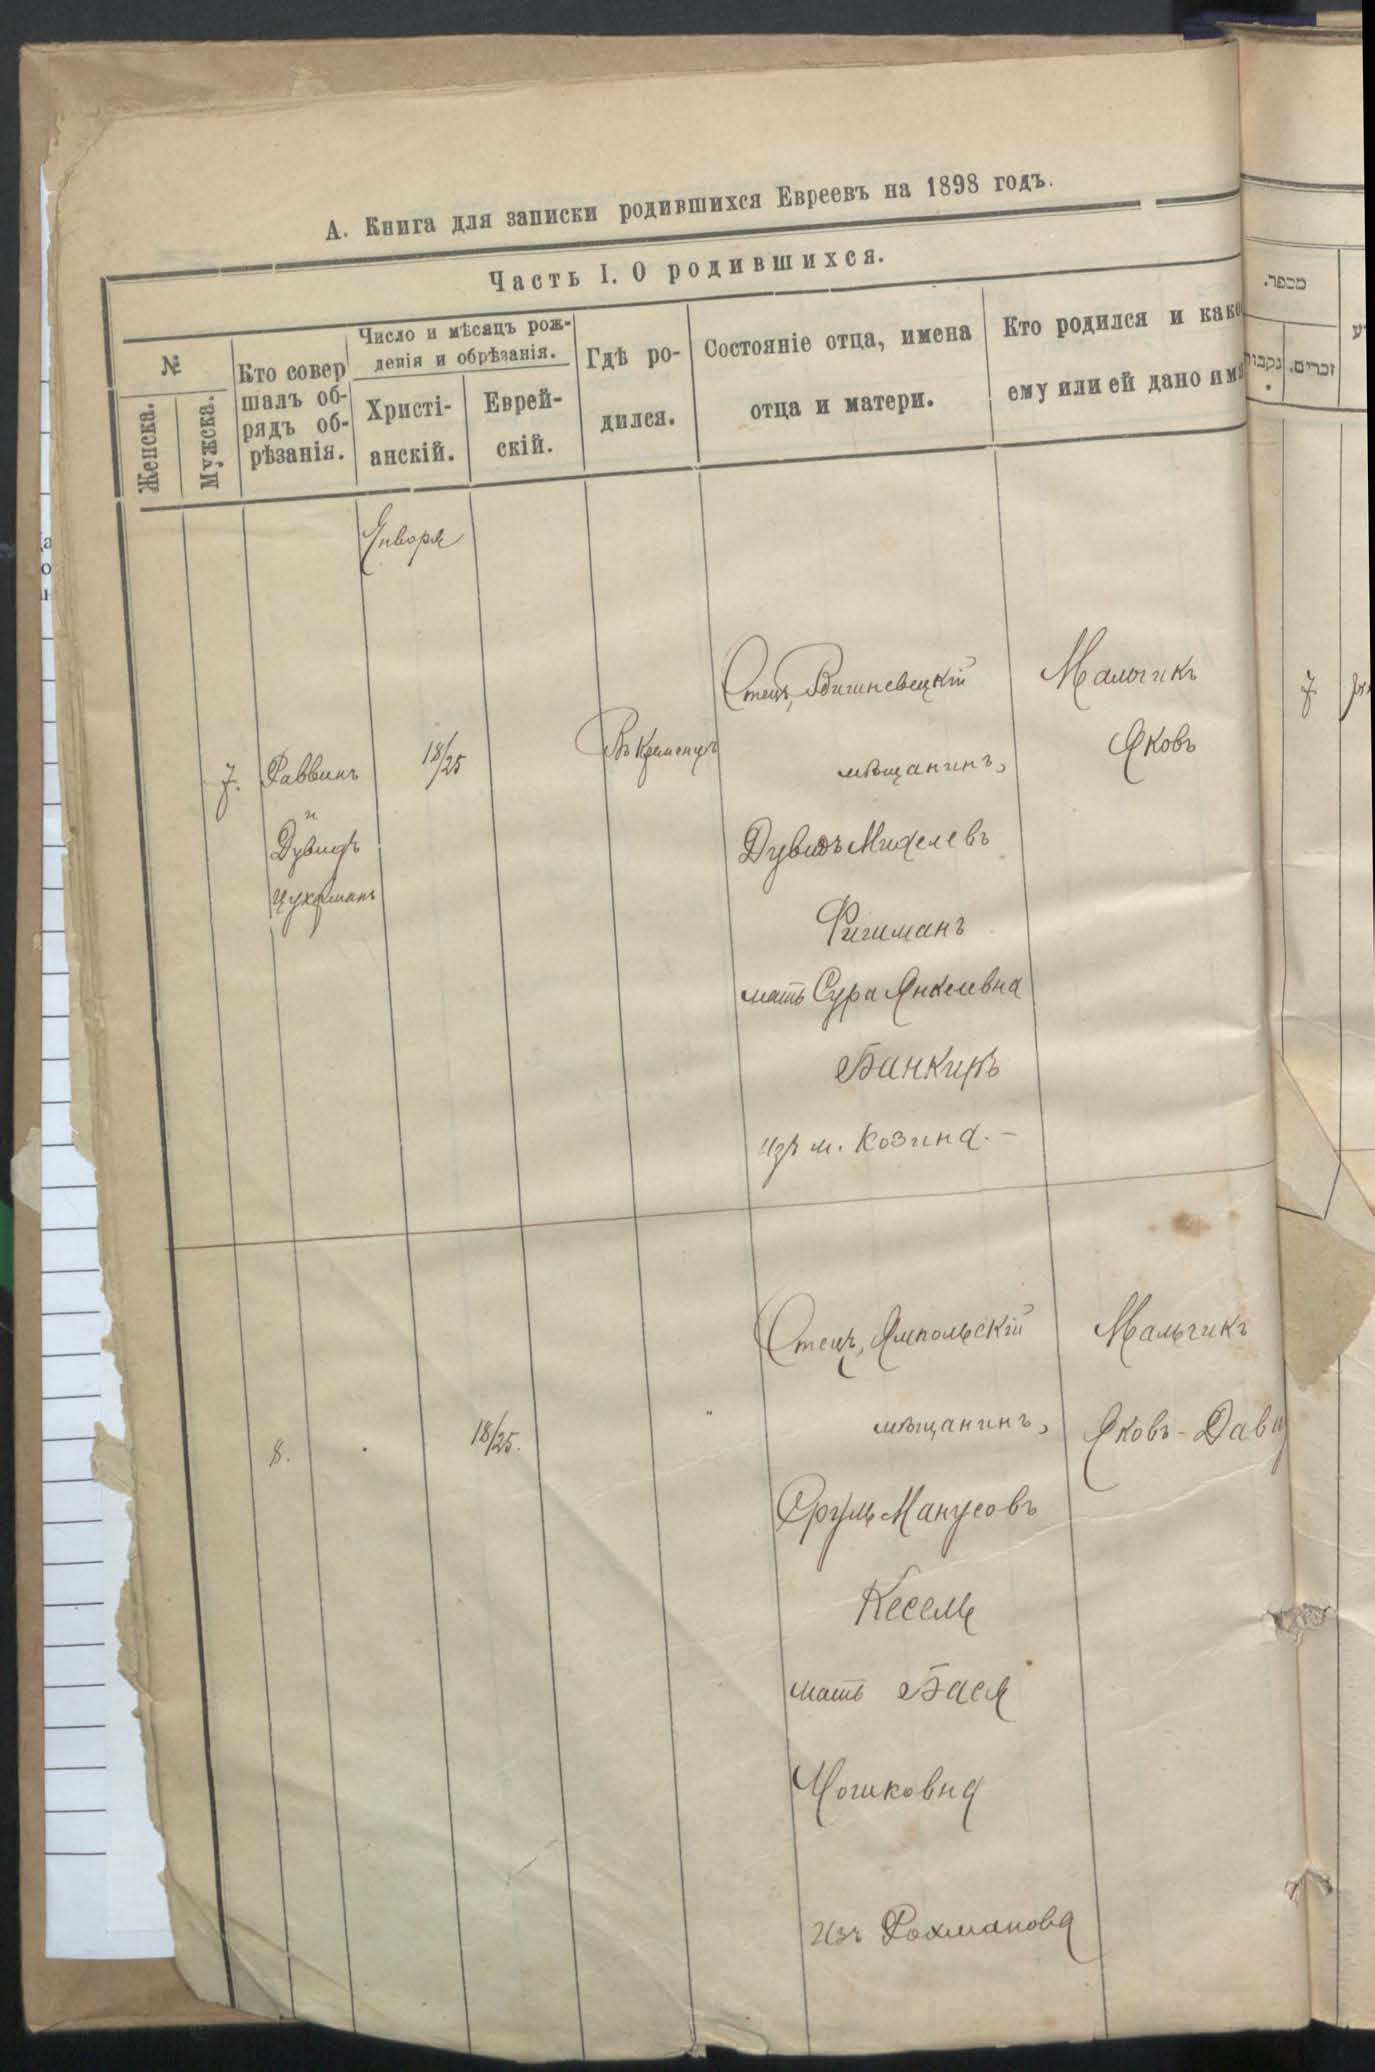 А. Книга для записки родившихся Евреевъ на 1898 годъ.
Часть I. О родившихся.
№
Женска.
Мужска.
Кто совер
шалъ об-
рядъ об-
рѣзанія.
Число и мѣсяцъ рож-
денія и обрѣзанія.
Христі-
анскій.
Еврей-
скій.
Гдѣ ро-
дился.
Состояніе отца, имена
отца и матери.
Кто родился и како
ему или ей дано имя
מספר.
נקבות
זכרים.
Января
7.
Раввинъ
и
Дувидъ
18/25
Въ Кременцѣ
Отецъ, Вишневецкій
мѣщанинъ,
Дувидъ Михелевъ
Фишманъ
мать Сура Янкелевна
Банкиръ
изъ м. Козина. –
Мальчикъ
Яковъ
7
8.
18/25.
"
Отецъ, Ямпольскій
мѣщанинъ,
Сруль Манусовъ
Кесель
мать Бася
Мошковна
изъ Рохманова
Мальчикъ
Яковъ-Дави